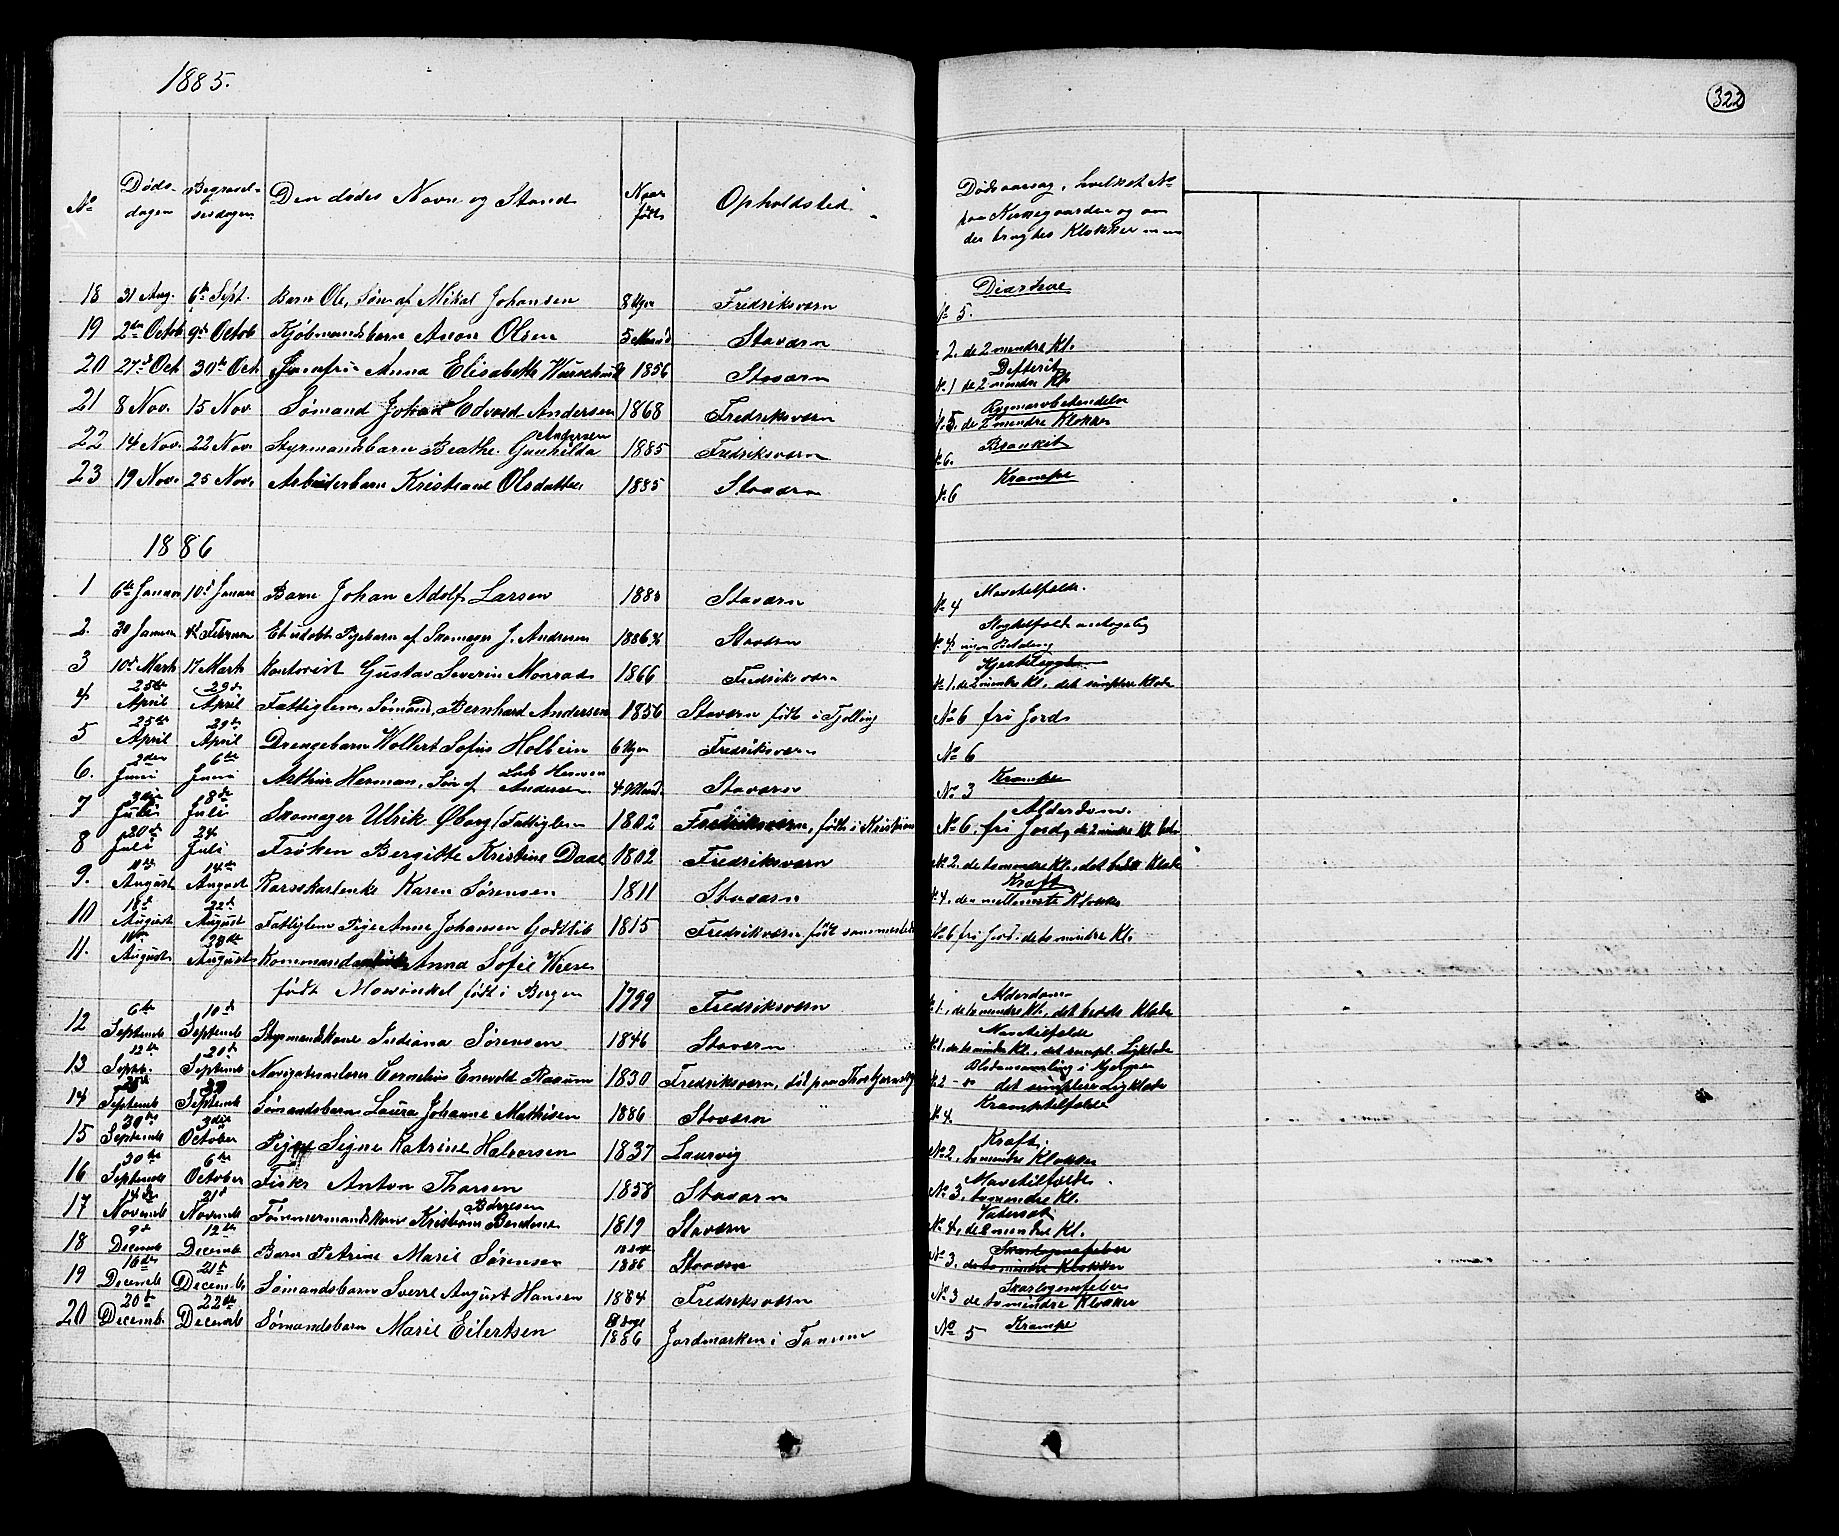 1885.
322
No
Døds-
dagen
Begravel-
sesdagen
Den dødes Navn og Stand
Naar
født
Opholdsted
Dødsaarsag, hvilket No
paa Kirkegaarden og om
der brugtes Klokker
18 31 Aug. 6te Sept. Barn Ole, Søn af Mikal Johansen 8 Uger Fredriksværn Diarrhoe No 5.
19 2den Octob 9de Octob Kjøbmandsbarn Anon Olsen 5 Maand Staværn 2. de 2 mindre Kl.
20 27de Oct. 30te Oct. Jomfru Anna Elisabeth 1856 Staværn Defterit No 1 de 2 mindre Kl.
21 8 Nov. 15 Nov. Sømand Johan Edvard Andersen 1868 Fredriksværn Rygmarvsbetendelse No 5. de 2 mindre Klokker
22 14 Nov. 22 Nov. Styrmandsbarn Beathe Gunhilda Andersen 1885 Fredriksværn Bronkit No 6.
23 19 Nov. 25 Nov. Arbeiderbarn Kristiane Olsdatter 1885 Staværn Krampe No 6
1886
1 6te Januar 10de Januar Barn Johan Adolf Larsen 188 Staværn Mavetilfælde. No 4
2. 30 Januar Februar Et udøbt Pigebarn af Skomager J. Andersen 1886 Staværn No 4 ingen Betaling
3 10de Marts 17 Marts Kontorist Gustav Severin Monrad 1866 Fredriksværn No 1. de 2 mindre Kl. det simplere Klæde
4 25de April 29de April Fattiglem, Sømand, Bernhard Andersen 1856 Staværn født i Tjølling No 6 fri Jord
5 25de April 29de April Drengebarn Wollert Sofus Holbein 6 Uger Fredriksværn No 6
6. 2den Juni 6te Juni Arthur Herman, Søn af Herman Andersen 4 Maand. Staværn Krampe No 3
7 3die Juli 8de Juli Skomager Ulrik Øberg, Fattiglem 1802 Fredriksværn, født i Alderdom. No 6. fri Jord, de 2 mindre Kl.
8 20de Juli 24. Juli Frøken Bergitte Kristine Daae 1802 Fredriksværn No 2. de to mindre Kl., det bedre Klæde
9. August 14de August Karen Sørensen 1811 Staværn Kræft No 4. den mellemste Klokke
10 18de August 22de August Fattiglem Pige Anne Johansen Godtlib 1815 Fredriksværn født sammesteds No 6 fri Jord. de to mindre Kl.
11. August August Anna Sofie
født Mowinkel født i Bergen 1799 Fredriksværn Alderdom No 1, de to mindre Kl., det bedre Klæde
12 6te Septemb 10de Septemb Styrmandskone Indiana Sørensen 1846 Staværn Mavetilfælde No 1. de to mindre Kl., det simpl. Ligklæde
13 12te Septb. 20de Septemb Navigationslærer Cornelius Enevold Rasum 1830 Fredriksværn, i Hjernen No 2 - det simplere Ligklæde
14 Septemb Septemb Sømandsbarn Laura Johanne Mathisen 1886 Staværn Krampetilfælde No 4.
15 30te Septemb 3die October Pige Signe Katrine Halvorsen 1837 Laurvig Kræft. No 2, to mindre Klokker
16 30te Septemb 6te October Fisker Anton Thorsen 1858 Staværn Mavetilfælde. No 3, to mindre Kl.
17 14de Novemb 21de Novemb Tømmermandskone Børgesen 1819 Staværn Vatersot No 4, de 2 mindre Kl.
18 9de Decemb 12te Decemb Barn Petrine Marie Sørensen 1886 Staværn Skarlagensfeber No 3, de to mindre Klokker
19 16de Decemb 21de Decemb Sømandsbarn Sverre August Hansen 1884 Fredriksværn Skarlagensfeber No 3 de to mindre Klokker
20 20de Decemb. 22de Decemb Sømandsbarn Marie Eilertsen 8 Dage 1886 Jordmarken i Tanum Krampe No 5